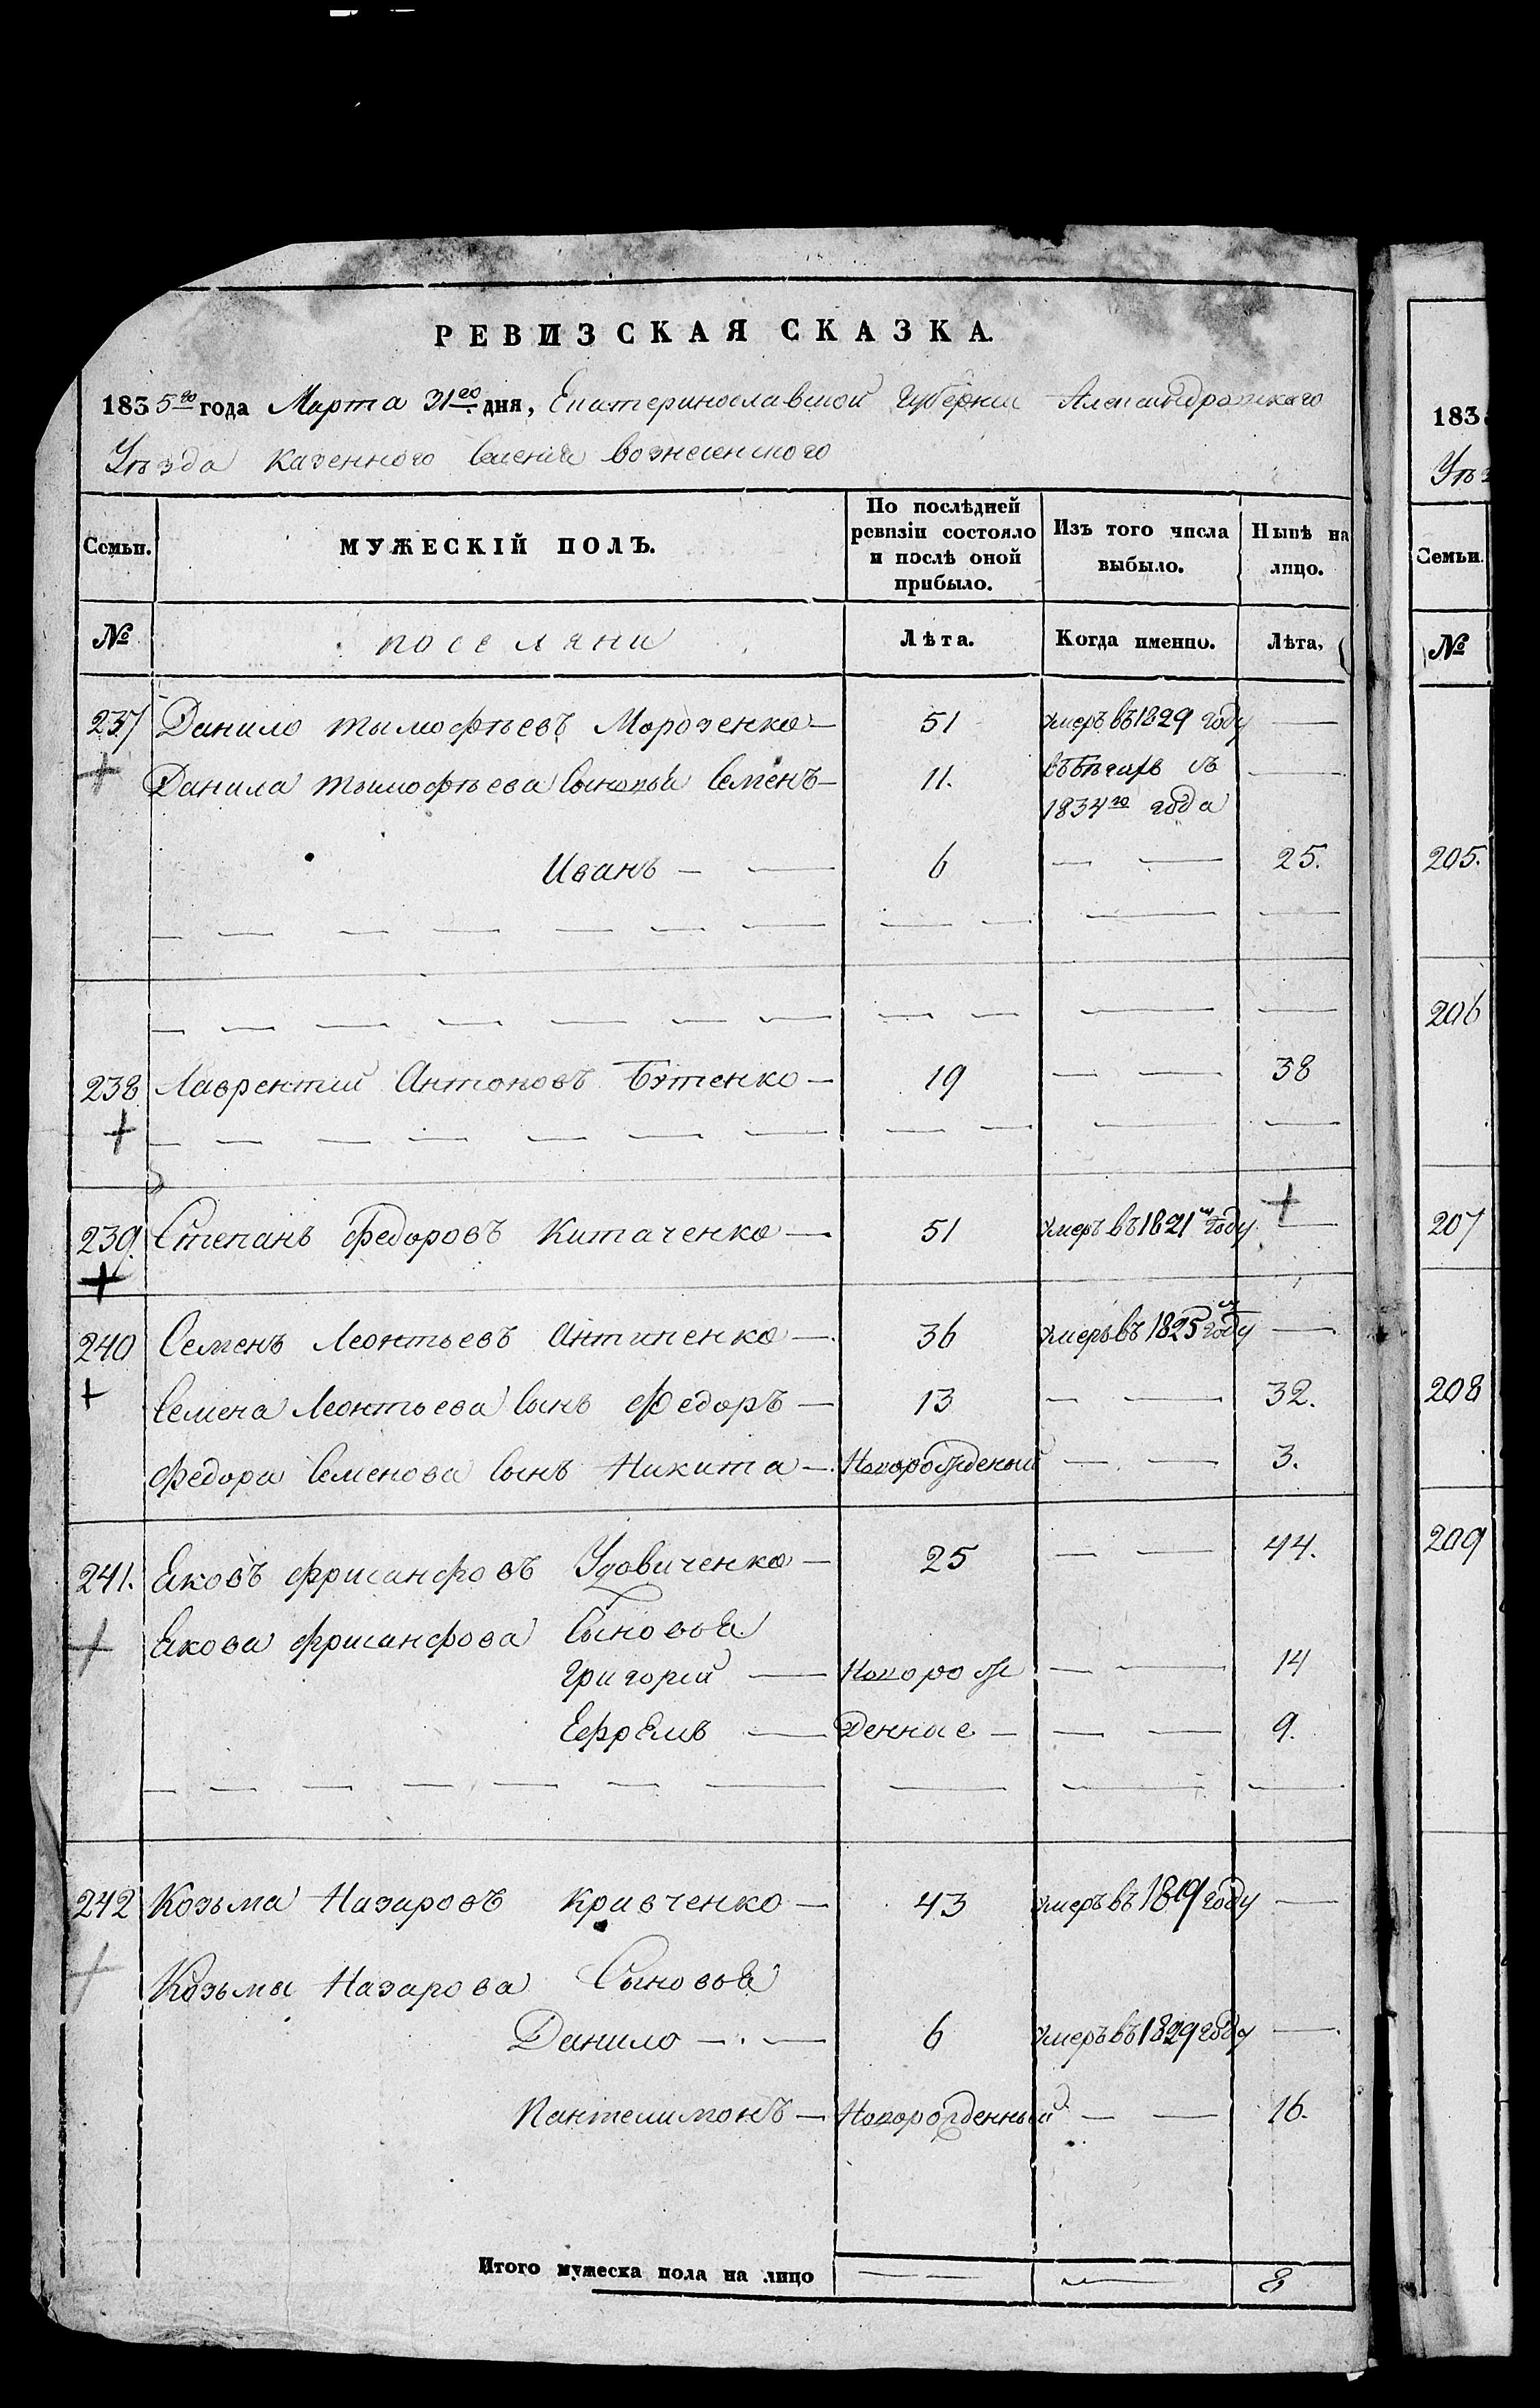 РЕВИЗСКАЯ СКАЗКА.
1835го года Марта 31го дня, Екатеринославской Губернии Александровскаго
Уѣзда казенного Селенія вознесенского
Семьи. МУЖЕСКІЙ ПОЛЪ. По послѣдней ревизіи состояло и послѣ оной прибыло. Изъ того числа выбыло. Нынѣ на лицо.
№ поселяни Лѣта. Когда именно. Лѣта,
237 Данило тымофѣевъ Морозенко — 51 умеръ въ 1829 году —
Данила тымофѣева Сыновья Семенъ — 11. въ бѣгахъ съ —
1834го года
Иванъ — — 6 — — 25.
238 Лаврентий Антоновъ Бутенко — 19 — — 38
239. Степанъ Федоровъ Китаченко — 51 умеръ въ 1821м году —
240 Семенъ Леонтьевъ Антипенко — 36 умеръ въ 1825м году —
Семена Леонтьева Сынъ Федоръ — 13 — — 32.
Федора Семенова Сынъ Никита — Новорожденый — — 3.
241. Яковъ Фрисанфовъ Удовиченко — 25 — — 44.
Якова Фрисанфова Сыновья
Григорий — Новорож — — 14
Ефремъ — Денные — — — 9.
242 Козьма Назаровъ Кравченко — 43 умеръ въ 1819 году —
Козьмы Назарова Сыновья
Данило — — 6 умеръ въ 1829 году —
Пантелимонъ — Новорожденный — — 16.
Итого мужеска пола на лицо — — — 8
183
Уѣз
Семьи.
№
205.
206
207
208
209